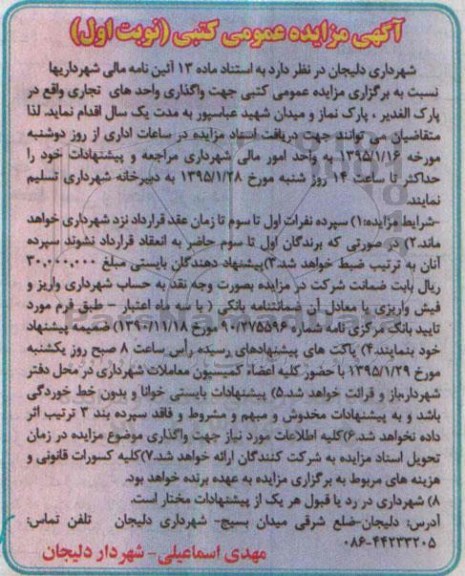 آگهی مزایده عمومی کتبی (نوبت اول)
شهرداری دلیجان در نظر دارد به استناد ماده ۱۳ آئین نامه مالی شهرداریها
نسبت به برگزاری مزایده عمومی کتبی جهت واگذاری واحد های تجاری واقع در
پارک الغدیر ، پارک نماز و میدان شهید عباسپور به مدت یک سال اقدام نماید. لذا
متقاضیان می توانند جهت دریافت اسناد مزایده در ساعات اداری از روز دوشنبه
مورخه ۱۳۹۵/۱/۱۶ به واحد امور مالی شهرداری مراجعه و پیشنهادات خود را
حداکثر تا ساعت ۱۴ روز شنبه مورخ ۱۳۹۵/۱/۲۸ به دبیرخانه شهرداری تسلیم
نمایند.
-شرایط مزایده:۱) سپرده نفرات اول تا سوم تا زمان عقد قرارداد نزد شهرداری خواهد
ماند.۲) در صورتی که برندگان اول تا سوم حاضر به انعقاد قرارداد نشوند سپرده
آنان به ترتیب ضبط خواهد شد.۳)پیشنهاد دهندگان بایستی مبلغ ۳۰,۰۰۰,۰۰۰
ریال بابت ضمانت شرکت در مزایده بصورت وجه نقد به حساب شهرداری واریز و
فیش واریزی یا معادل آن ضمانتنامه بانکی ( با سه ماه اعتبار - طبق فرم مورد
تایید بانک مرکزی نامه شماره ۹۰/۲۷۵۵۹۶ مورخ ۱۳۹۰/۱۱/۱۸) ضمیمه پیشنهاد
خود بنمایند.۴) پاکت های پیشنهادهای رسیده رأس ساعت ۸ صبح روز یکشنبه
مورخ ۱۳۹۵/۱/۲۹ با حضور کلیه اعضاء کمیسیون معاملات شهرداری در محل دفتر
شهردار،باز و قرائت خواهد شد.۵) پیشنهادات بایستی خوانا و بدون خط خوردگی
باشد و به پیشنهادات مخدوش و مبهم و مشروط و فاقد سپرده بند ۳ ترتیب اثر
داده نخواهد شد.۶)کلیه اطلاعات مورد نیاز جهت واگذاری موضوع مزایده در زمان
تحویل اسناد مزایده به شرکت کنندگان ارائه خواهد شد.۷)کلیه کسورات قانونی و
هزینه های مربوط به برگزاری مزایده به عهده برنده خواهد بود.
۸) شهرداری در رد یا قبول هر یک از پیشنهادات مختار است.
آدرس: دلیجان-ضلع شرقی میدان بسیج- شهرداری دلیجان تلفن تماس:
۰۸۶-۴۴۲۳۳۲۰۵
مهدی اسماعیلی- شهردار دلیجان